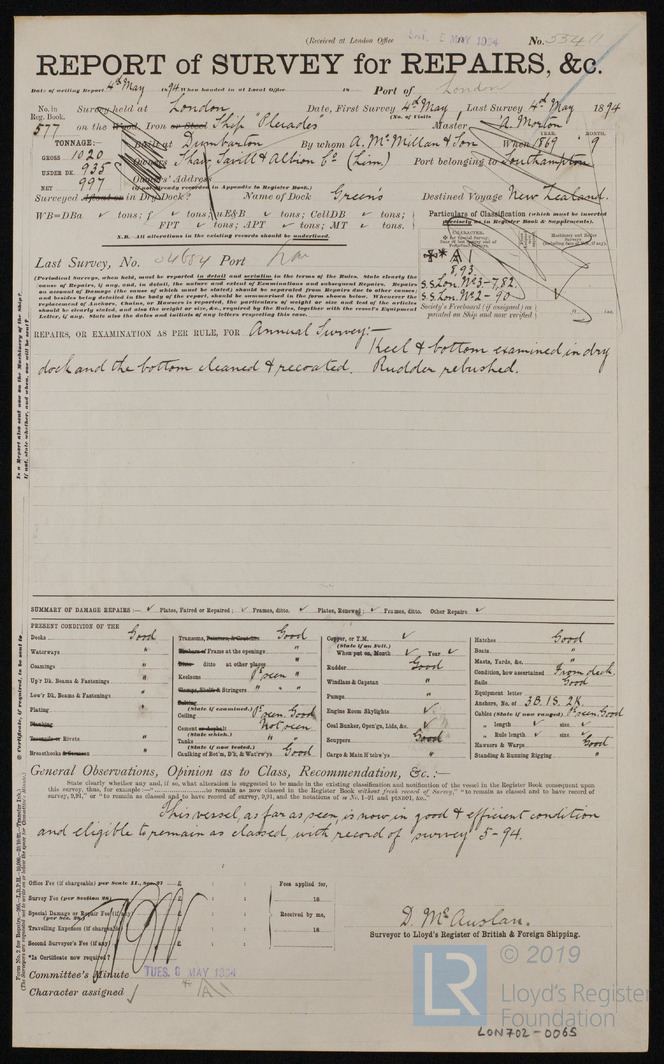 (Received at London Office MAY 1894 No. 55411
REPORT of SURVEY for REPAIRS, &c.
Date of writing Report 4th May 1894 When handed in at Local Office 18 Port of London
No. in Reg. Book. Survey held at London Date, First Survey 4th May Last Survey 4th May 1894
(No. of Visits
577 on the Wood, Iron or Steel Ship "Pleiades" Master A. Morton
TONNAGE:— Built at Dumbarton By whom A. McMillan & Son When 1869 YEAR. MONTH. 9
GROSS 1020 Owners Shaw Savill & Albion Co (Lim) Port belonging to Southampton
UNDER DK. 935 Owners' Address
NET 997 (if not already recorded in Appendix to Register Book.)
Surveyed Afloat or in Dry Dock? Name of Dock Green's Destined Voyage New Zealand.
WB=DBa ✓ tons; f ✓ tons; uE&B ✓ tons; CellDB ✓ tons;
FPT ✓ tons; APT ✓ tons; MT ✓ tons.
N.B. All alterations in the existing records should be underlined.
Particulars of Classification (which must be inserted precisely as in Register Book & Supplements).
✠ * A 1
8,93
S.S. Lon. No 3-7,82.
S.S. Lon. No 2-90
Society's Freeboard (if assigned) as painted on Ship and now verified
Last Survey, No. Port Lon
(Periodical Surveys, when held, must be reported in detail and seriatim in the terms of the Rules. State clearly the
cause of Repairs, if any, and, in detail, the nature and extent of Examinations and subsequent Repairs. Repairs
on account of Damage (the cause of which must be stated) should be separated from Repairs due to other causes;
and besides being detailed in the body of the report, should be summarised in the form shown below. Whenever the
replacement of Anchors, Chains, or Hawsers is reported, the particulars of weight or size and test of the articles
should be clearly stated, and also the weight or size, &c., required by the Rules, together with the vessel's Equipment
Letter, if any. State also the dates and initials of any letters respecting this case.
REPAIRS, OR EXAMINATION AS PER RULE, FOR Annual Survey:—
Keel & bottom examined in dry
dock and the bottom cleaned & recoated. Rudder rebushed.
Is a Report also sent now on the Machinery of the Ship?
If not, state whether, and when, one will be sent?
SUMMARY OF DAMAGE REPAIRS:— ✓ Plates, Faired or Repaired; ✓ Frames, ditto. ✓ Plates, Renewed; ✓ Frames, ditto. Other Repairs ✓
PRESENT CONDITION OF THE
Decks Good
Waterways "
Coamings "
Up'r Dk. Beams & Fastenings "
Low'r Dk. Beams & Fastenings "
Plating "
Planking
Treenails or Rivets "
Breasthooks & Stemson "
Transoms, Pointers, & Crutches Good
Timbers of Frame at the openings "
Ditto ditto at other places "
Keelsons Pt seen "
Clamps, Shelfs & Stringers " " "
Salting (State if examined.)
Ceiling Pt seen Good
Cement or Asphalt (State which.) Not seen
Tanks (State if now tested.) "
Caulking of Bot'm, D'k, & Wat'rwys Good
Copper, or Y.M. (State if on Felt.) ✓
When put on, Month ✓ Year ✓
Rudder Good
Windlass & Capstan "
Pumps "
Engine Room Skylights ✓
Coal Bunker, Open'gs, Lids, &c. ✓
Scuppers Good
Cargo & Main H'tchw'ys "
Hatches Good
Boats "
Masts, Yards, &c. "
Condition, how ascertained From deck
Sails Good
Equipment letter
Anchors, No. of 3B. 1S. 2K.
Cables (State if now ranged) Pt seen Good
" length ✓ size ✓
" Rule length ✓ size ✓
Hawsers & Warps Good
Standing & Running Rigging "
General Observations, Opinion as to Class, Recommendation, &c.:—
State clearly whether any, and if so, what alteration is suggested to be made in the existing classification and notification of the vessel in the Register Book consequent upon
this survey, thus, for example:—" to remain as now classed in the Register Book without fresh record of Survey," "to remain as classed and to have record of
survey, 9,91," or "to remain as classed and to have record of survey, 9,91, and the notations of
This vessel, as far as seen, is now in good & efficient condition
and eligible to remain as classed, with record of survey 5-94.
Office Fee (if chargeable) per Scale 11., Sec. 27 £ : : Fees applied for,
Survey Fee (per Section 28) £ : : 18
Special Damage or Repair Fee (if any) (per Sec. 28) £ : : Received by me,
Travelling Expenses (if chargeable) £ : : 18
Second Surveyor's Fee (if any) £ : :
*Is Certificate now required?
D. McAuslan.
Surveyor to Lloyd's Register of British & Foreign Shipping.
Committee's Minute TUES. 8 MAY 1894
Character assigned
© 2019
LR
Lloyd's Register
Foundation
LON702-0065